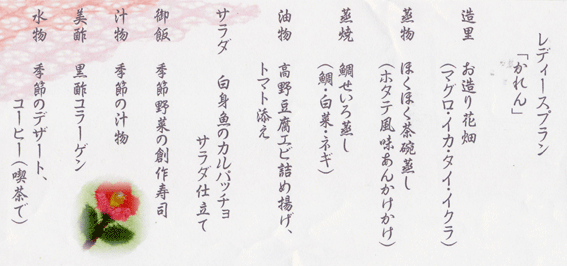 レディースプラン
「かれん」
造里 お造り花畑
（マグロ・イカ・タイ・イクラ）
蒸物 ほくほく茶碗蒸し
（ホタテ風味あんかけかけ）
蒸焼 鯛せいろ蒸し
（鯛・白菜・ネギ）
油物 高野豆腐エビ詰め揚げ、
トマト添え
サラダ 白身魚のカルパッチョ
サラダ仕立て
御飯 季節野菜の創作寿司
汁物 季節の汁物
美酢 黒酢コラーゲン
水物 季節のデザート、
コーヒー（喫茶で）